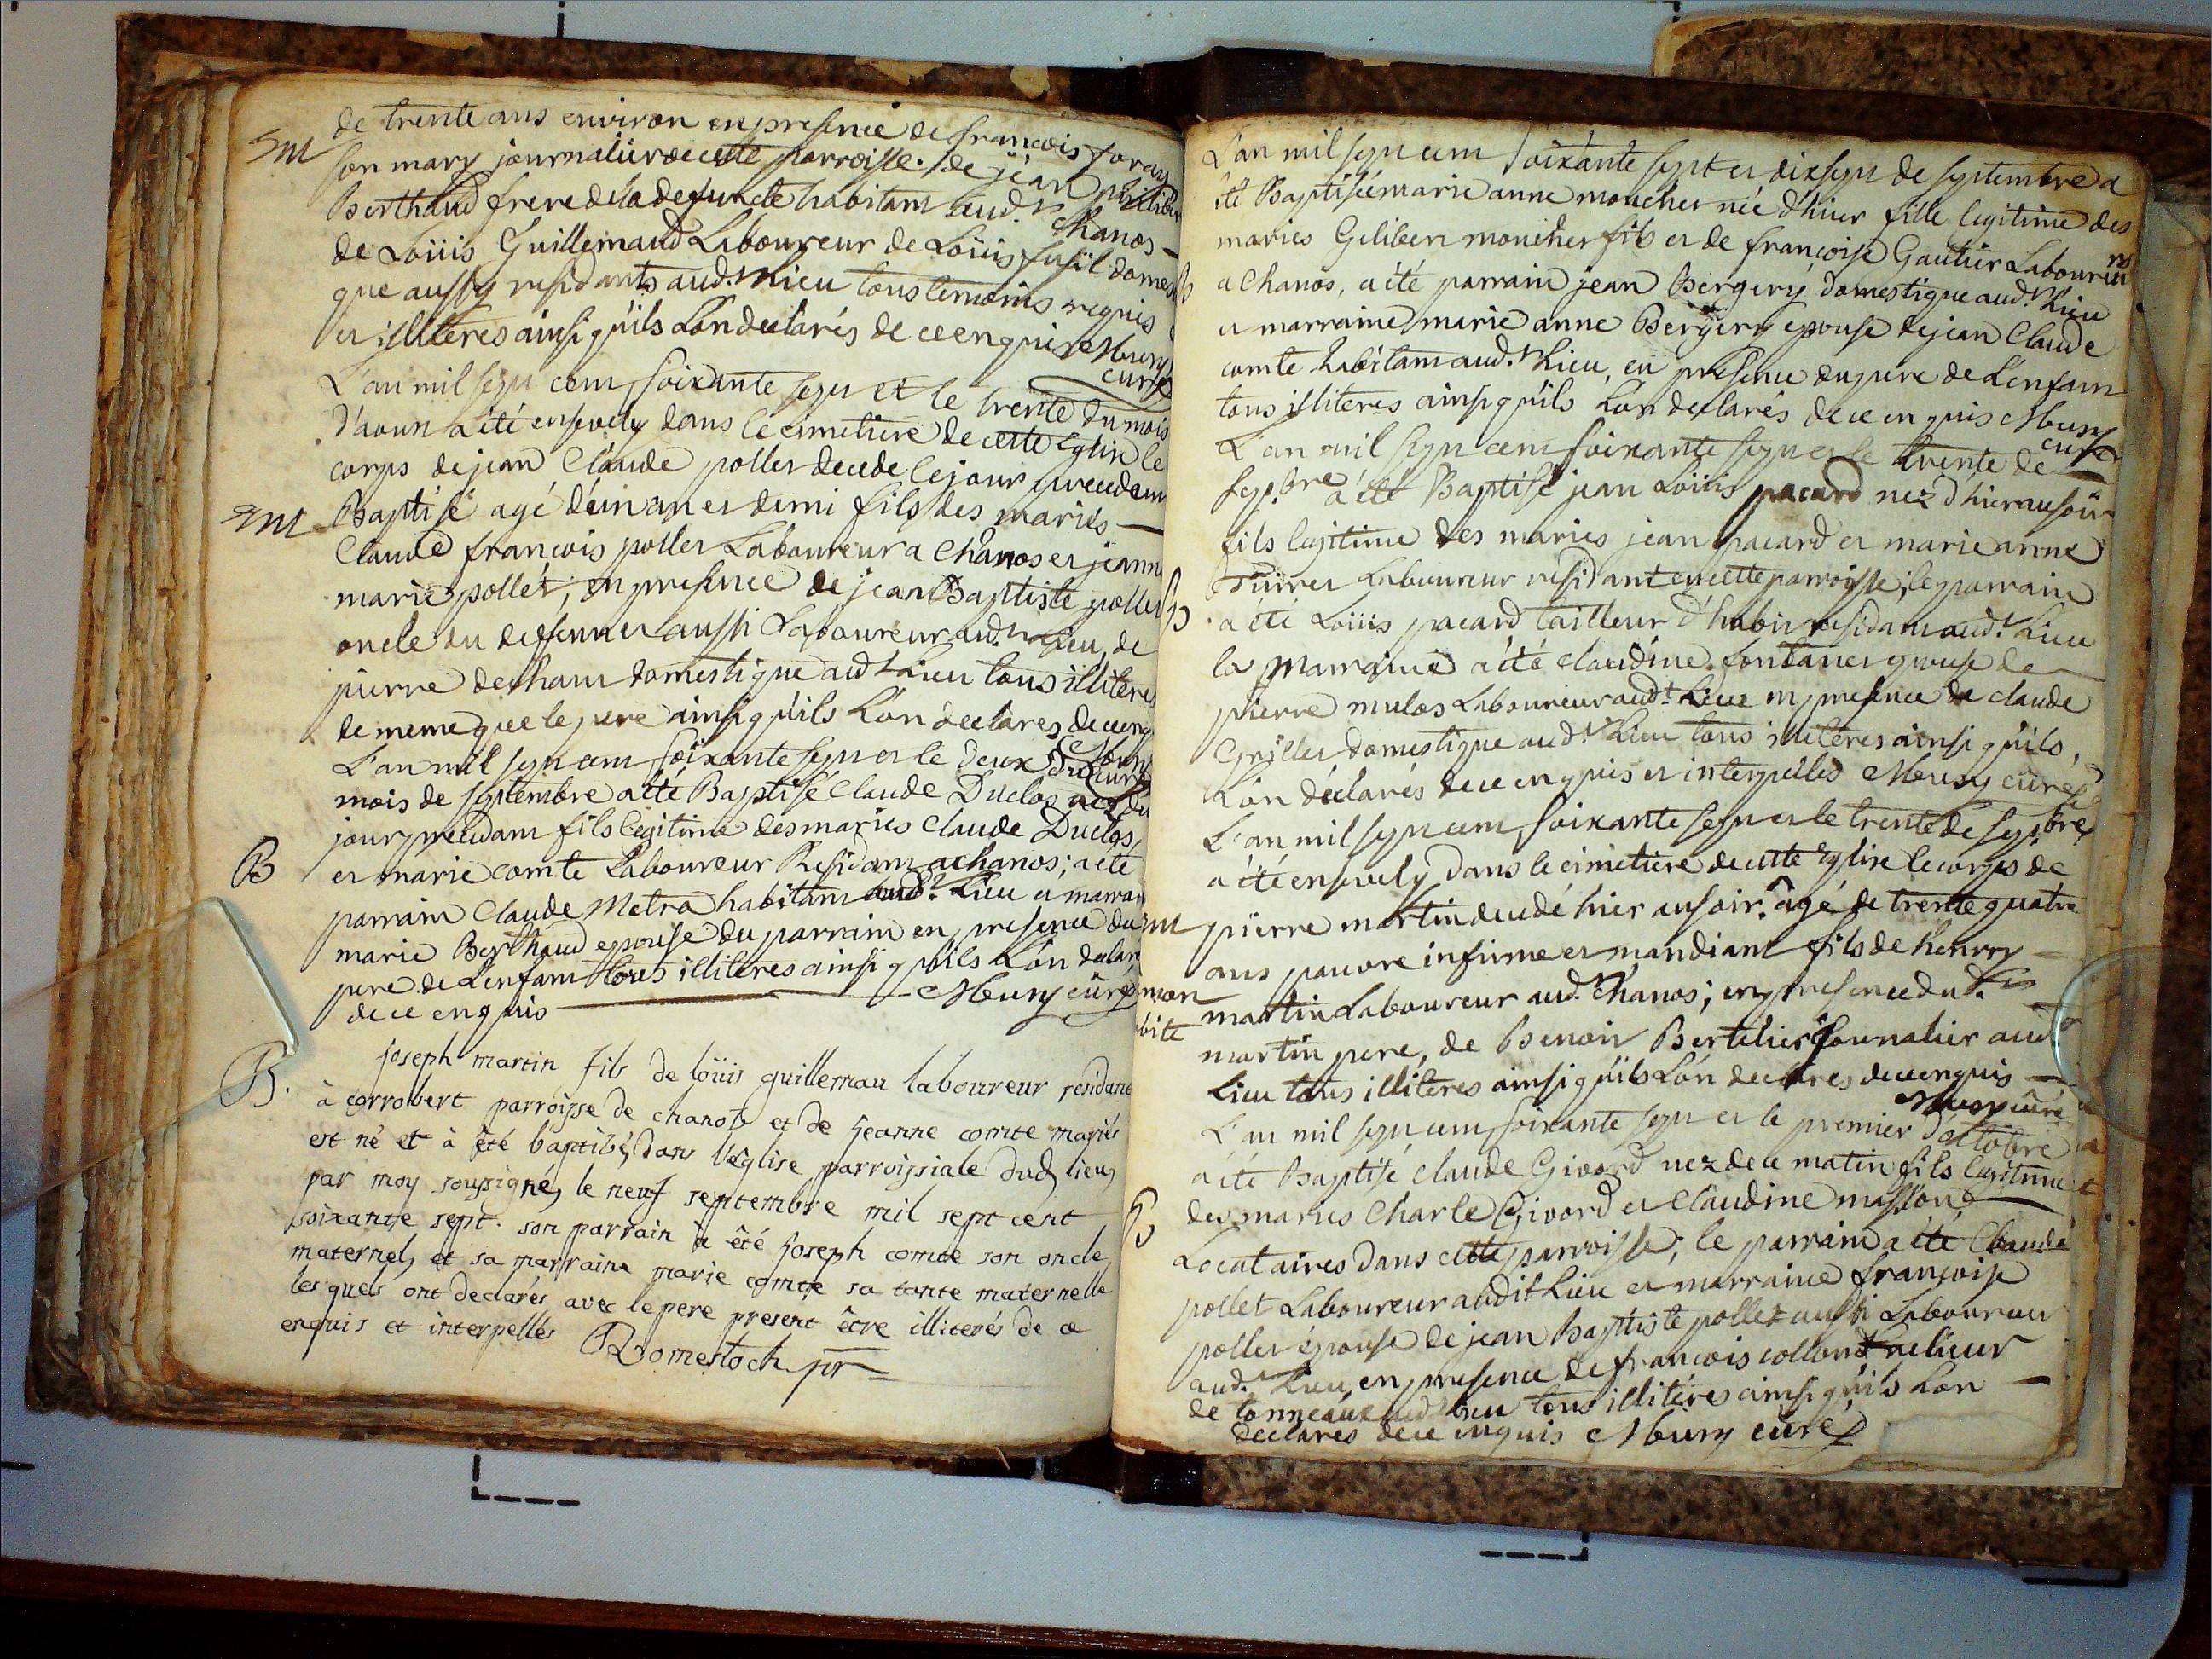 de trente ans environ en presence de francois foray
m son mary journalier de cette parroisse. de jean philiber
Berthaud frere de la defuncte habitant aud.t chanos
de Loüis Guillemaud Laboureur de Loüis fusil domes
que aussy residants aud.t Lieu tous temoins requis
et illiteres ainsi qu'ils L'on declarés de ce enquis Meury
curé
L'an mil sept cent soixante sept et le trente du mois
D'aoust a été ensevely dans le cimetiere de cette Eglise le
corps de jean Claude pollet decede le jour precedant
m Baptisé agé d'ún an et demi fils des mariés
Claude francois pollet Laboureur a Chanos et jeanne
marie pollet, en presence de jean Baptiste pollet
oncle du deffunt et aussi Laboureur aud.t Lieu, de
pierre dechaut domestique aud.t Lieu tous illiteres
de meme que le pere ainsi qu'ils L'on declares de ce enq
Meury curé
L'an mil sept cent soixante sept et le deux du
mois de septembre a été Baptisé Claude Duclos nez du
jour precedant fils legitime des mariés Claude Duclos,
B et marie comte Laboureur Residant a chanos; a été
parrain Claude Metra habitant aud.t Lieu et marrain
marie Berthaud epouse du parrain en presence du
pere de L'enfant tous illiteres ainsi qu'ils L'on declare
de ce enquis Meury curé
joseph martin fils de loüis guillemau laboureur residant
B. à corrobert parroisse de chanoss et de jeanne comte mariés
est né et à été baptisé, dans l'eglise parroissiale dud, lieu,
par moy soussigné, le neuf septembre mil sept cent
soixante sept. son parrain à été joseph comte son oncle
maternel, et sa marraine marie comte sa tante maternelle
lesquels ont declarés avec le pere present être illiterés de ce
enquis et interpellés Domestoch ptr
L'an mil sept cent soixante sept et dix sept de septembre a
été Baptisée marie anne mouchet née d'hier fille legitime des
maries Gilibert mouchet fils et de françoise Gautier Laboureurs
B a Chanos, a été parrain jean Bergery domestique aud.t Lieu
et marraine marie anne Bergery epouse de jean Claude
comte habitant aud.t Lieu, en presence du pere de L'enfant
tous illiteres ainsi qu'ils L'on declarés de ce enquis Meury
curé
L'an mil sept cent soixante sept et le trente de
sep.bre a été Baptisé jean Loüis pacard nez d'hier au soir
fils legitime des maries jean pacard et marie anne
Laboureur residant en cette parroisse; le parrain
B a été Loüis pacard tailleur d'habit residant aud.t Lieu
la marraine a été claudine fontanet epouse de
pierre mulos Laboureur aud.t Lieu en presence de claude
Grillet domestique aud.t Lieu tous illiteres ainsi qu'ils,
L'on déclarés de ce enquis et interpellés Meury curé
L'an mil sept cent soixante sept et le trente de sep.bre
a été ensevely dans le cimetiere de cette Eglise le corps de
m pierre martin decedé hier au soir. âgé de trente quatre
ans pauvre infirme et mandiant fils de henrry
martin Laboureur aud.t Chanos; en presence dud.t
martin pere, de Benoit Bertelier journalier aud
Lieu tous illiteres ainsi qu'ils L'on declares de ce enquis
Meury curé
L'an mil sept cent soixante sept et le premier d'octobre
a été Baptisé Claude Givord nez de ce matin fils legitime
B des maries Charle Givord et Claudine masson
Locataires dans cette parroisse; le parrain a été Claude
pollet Laboureur audit Lieu et marraine françoise
pollet épouse de jean Baptiste pollet aussi Laboureur
aud.t Lieu, en presence de francois collond relieur
de tonneaux aud.t Lieu tous illitéres ainsi qu'ils L'on
declarés de ce enquis Meury curé